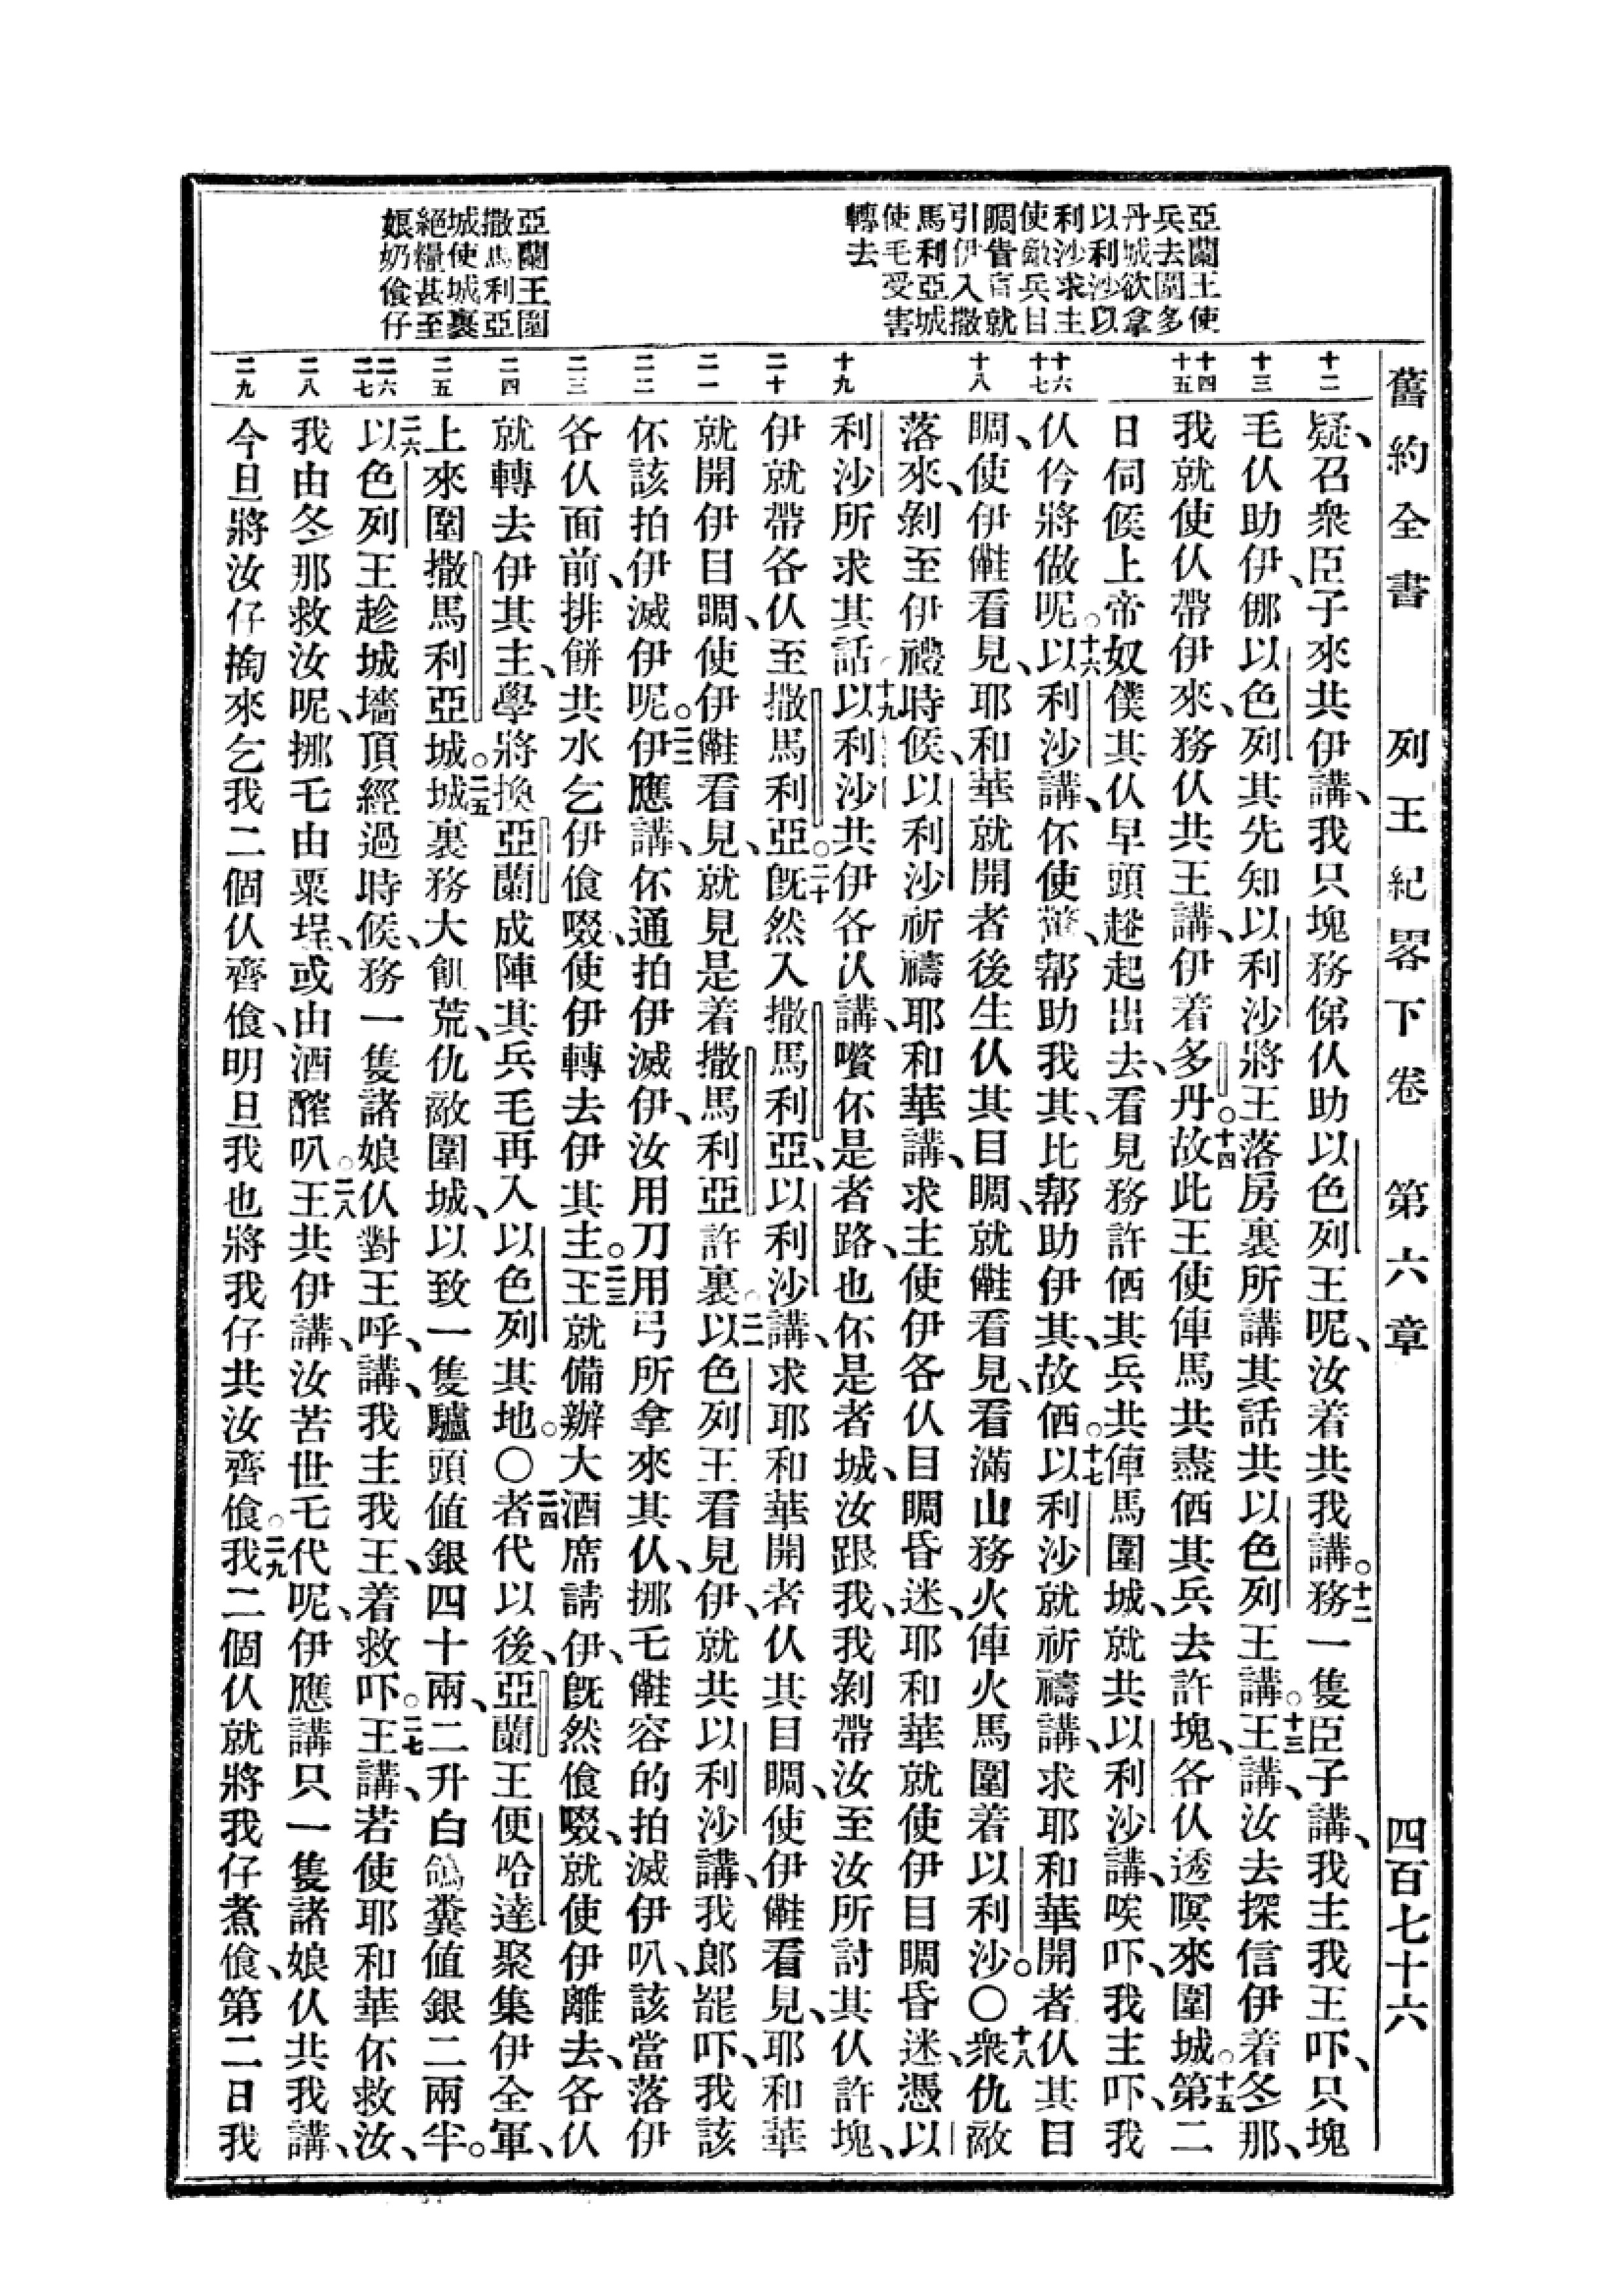 舊約全書 列王紀畧下卷 第六章 四百七十六
亞蘭王使
兵去圍多
丹城欲拿
以利沙以
利沙求主
使敵兵目
睭昏盲就
引伊入撒
馬利亞城
使毛受害
轉去
亞蘭王圍
撒馬利亞
城使城裏
絕糧甚至
娘奶飧仔
十二
十三
十四
十五
十六
十七
十八
十九
二十
二一
二二
二三
二四
二五
二六
二七
二八
二九
疑、召衆臣子來共伊講、我只塊務俤仈助以色列王呢、汝着共我講。十二務一隻臣子講、我主我王吓、只塊
毛仈助伊、倻以色列其先知以利沙將王落房裏所講其話共以色列王講。十三王講、汝去探信伊着冬那、
我就使仈帶伊來、務仈共王講、伊着多丹。十四故此王使俥馬共盡価其兵去許塊、各仈透暝來圍城。十五第二
日伺候上帝奴僕其仈早頭趖起出去、看見務許価其兵共俥馬圍城、就共以利沙講、唉吓、我主吓、我
仈仱將做呢。十六以利沙講、伓使驚、幇助我其、比幇助伊其、故価。十七以利沙就祈禱講、求耶和華開者仈其目
睭、使伊𠍦看見、耶和華就開者後生仈其目睭、就𠍦看見、看滿山務火俥火馬圍着以利沙。〇十八衆仇敵
落來、剝至伊禮時候、以利沙祈禱耶和華講、求主使伊各仈目睭昏迷、耶和華就使伊目睭昏迷、憑以
利沙所求其話。十九以利沙共伊各仈講、嚽伓是者路、也伓是者城、汝跟我、我剝帶汝至汝所討其仈許塊、
伊就帶各仈至撒馬利亞。二十旣然入撒馬利亞、以利沙講、求耶和華開者仈其目睭、使伊𠍦看見、耶和華
就開伊目睭、使伊𠍦看見、就見是着撒馬利亞許裏。二一以色列王看見伊、就共以利沙講、我郎罷吓、我該
伓該拍伊滅伊呢。二二伊應講、伓通拍伊滅伊、汝用刀用弓所拿來其仈、挪乇𠍦容的拍滅伊叭、該當落伊
各仈面前、排餅共水乞伊飧啜、使伊轉去伊其主。二三王就備辦大酒席請伊、旣然飧啜、就使伊離去、各仈
就轉去伊其主、學將換亞蘭成陣其兵毛再入以色列其地。〇二四者代以後、亞蘭王便哈達聚集伊全軍、
上來圍撒馬利亞城。二五城裏務大飢荒、仇敵圍城、以致一隻驢頭値銀四十兩、二升白鴿糞値銀二兩半。
二六以色列王趁城墻頂經過時候、務一隻諸娘仈對王呼、講、我主我王、着救吓。二七王講、若使耶和華伓救汝、
我由冬那救汝呢、挪乇由粟埕、或由酒醡叭。二八王共伊講、汝苦世乇代呢、伊應講只一隻諸娘仈共我講、
今旦將汝仔掏來乞我二個仈齊飧、明旦我也將我仔共汝齊飧。二九我二個仈就將我仔煮飧、第二日我